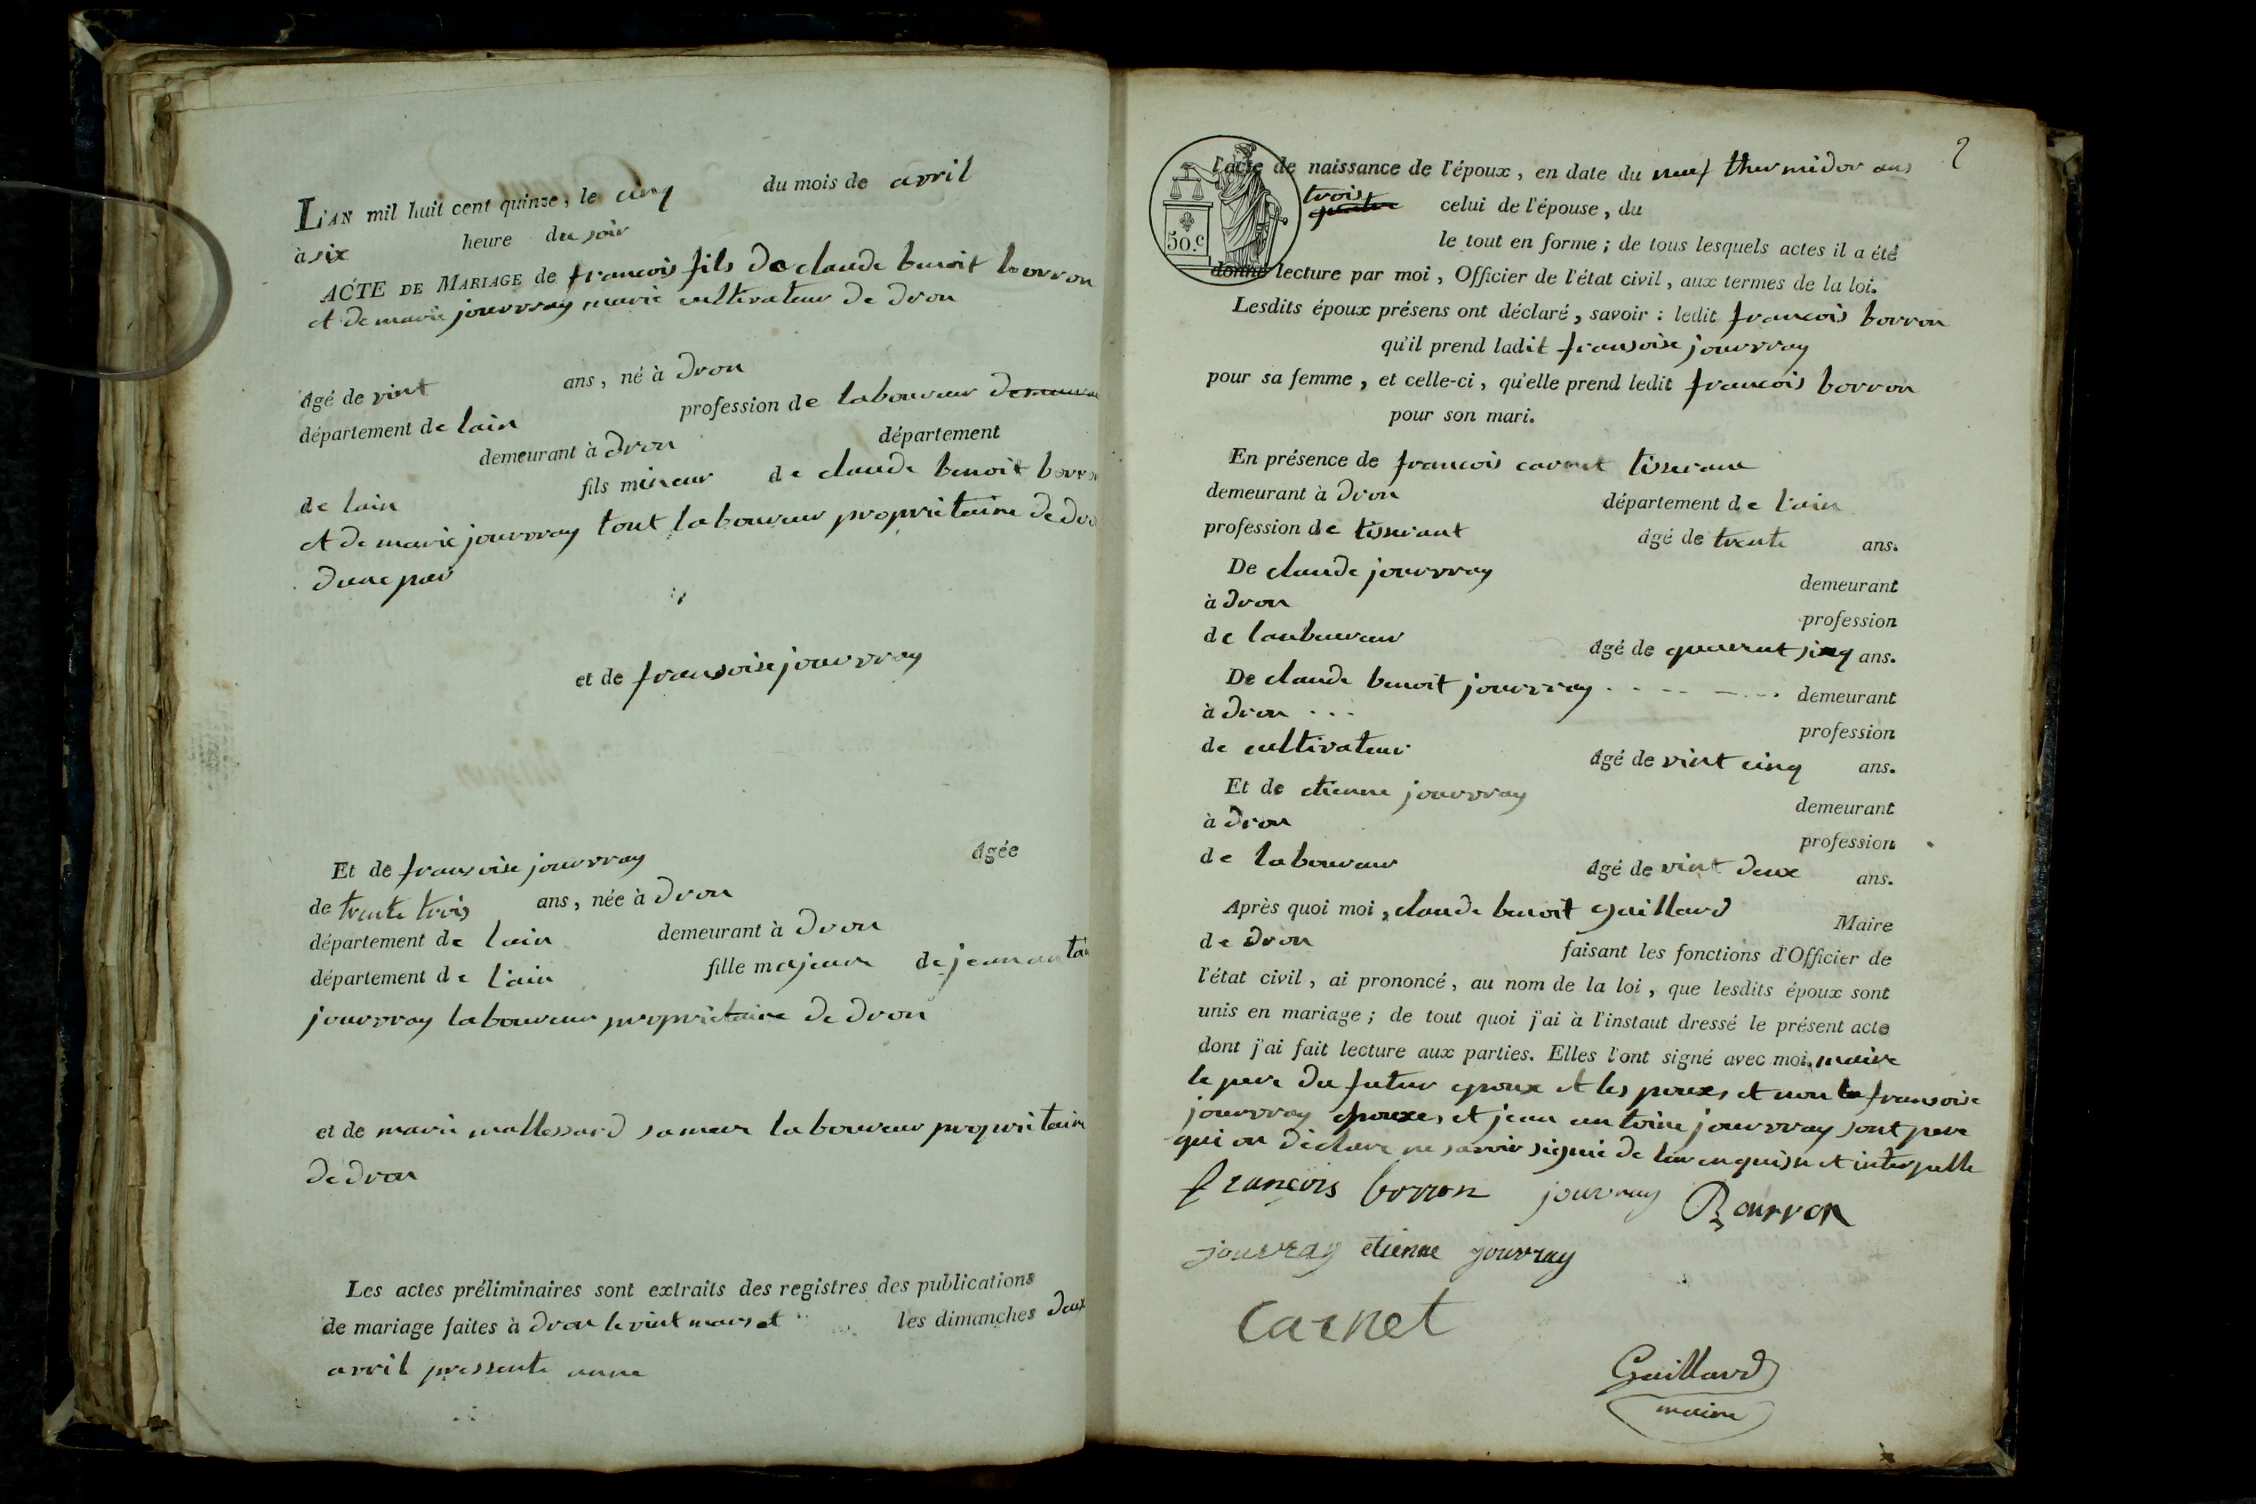 L'AN mil huit cent quinze, le cinq du mois de avril
à six heure du soir
ACTE DE MARIAGE de francois fils de claude benoit borron
et de marie jourvray marie cultivateur de dron
âgé de vint ans, né à dron
département de lain profession de laboureur
demeurant à dron département
de lain fils mineur de claude benoit borron
et de marie jourvray tout laboureur propriétaire de dro
dune par
et de fransoise jourvray
Et de fransoise jourvray âgée
de trente trois ans, née à dron
département de lain demeurant à dron
département de l'ain fille majeure de jean antoi
jourvray laboureur propriétaire de dron
et de marie mallessard sa mere laboureur propriétaire
de dron
Les actes préliminaires sont extraits des registres des publications
de mariage faites à dron le vint mars et les dimanches deux
avril pressente anne
2
l'acte de naissance de l'époux, en date du neuf thermidor ans
trois
quatre celui de l'épouse, du
50.c
le tout en forme; de tous lesquels actes il a été
donné lecture par moi, Officier de l'état civil, aux termes de la loi.
Lesdits époux présens ont déclaré, savoir: ledit francois borron
qu'il prend ladit fransoise jourvray
pour sa femme, et celle-ci, qu'elle prend ledit francois borron
pour son mari.
En présence de francois carnet tisserant
demeurant à dron département de l'ain
profession de tisserant âgé de trente ans.
De claude jourvray demeurant
à dron profession
de laubureur âgé de quarent sinq ans.
De claude benoit jourvray demeurant
à dron profession
de cultivateur âgé de vint cinq ans.
Et de etienne jourvray demeurant
à dron profession
de laboureur âgé de vint deux ans.
Après quoi moi, claude benoit gaillard Maire
de dron faisant les fonctions d'Officier de
l'état civil, ai prononcé, au nom de la loi, que lesdits époux sont
unis en mariage; de tout quoi j'ai à l'instaut dressé le présent acte
dont j'ai fait lecture aux parties. Elles l'ont signé avec moi, maire
le pere du futur epoux et les poux, et non la fransoise
jourvray epouxe, et jean antoine jourvray sont pere
qui on declare ne savoir signié de enquis et interpelle
françois borron jouvray Bourron
jouvray etienne jouvray
Carnet
Gaillard
maire